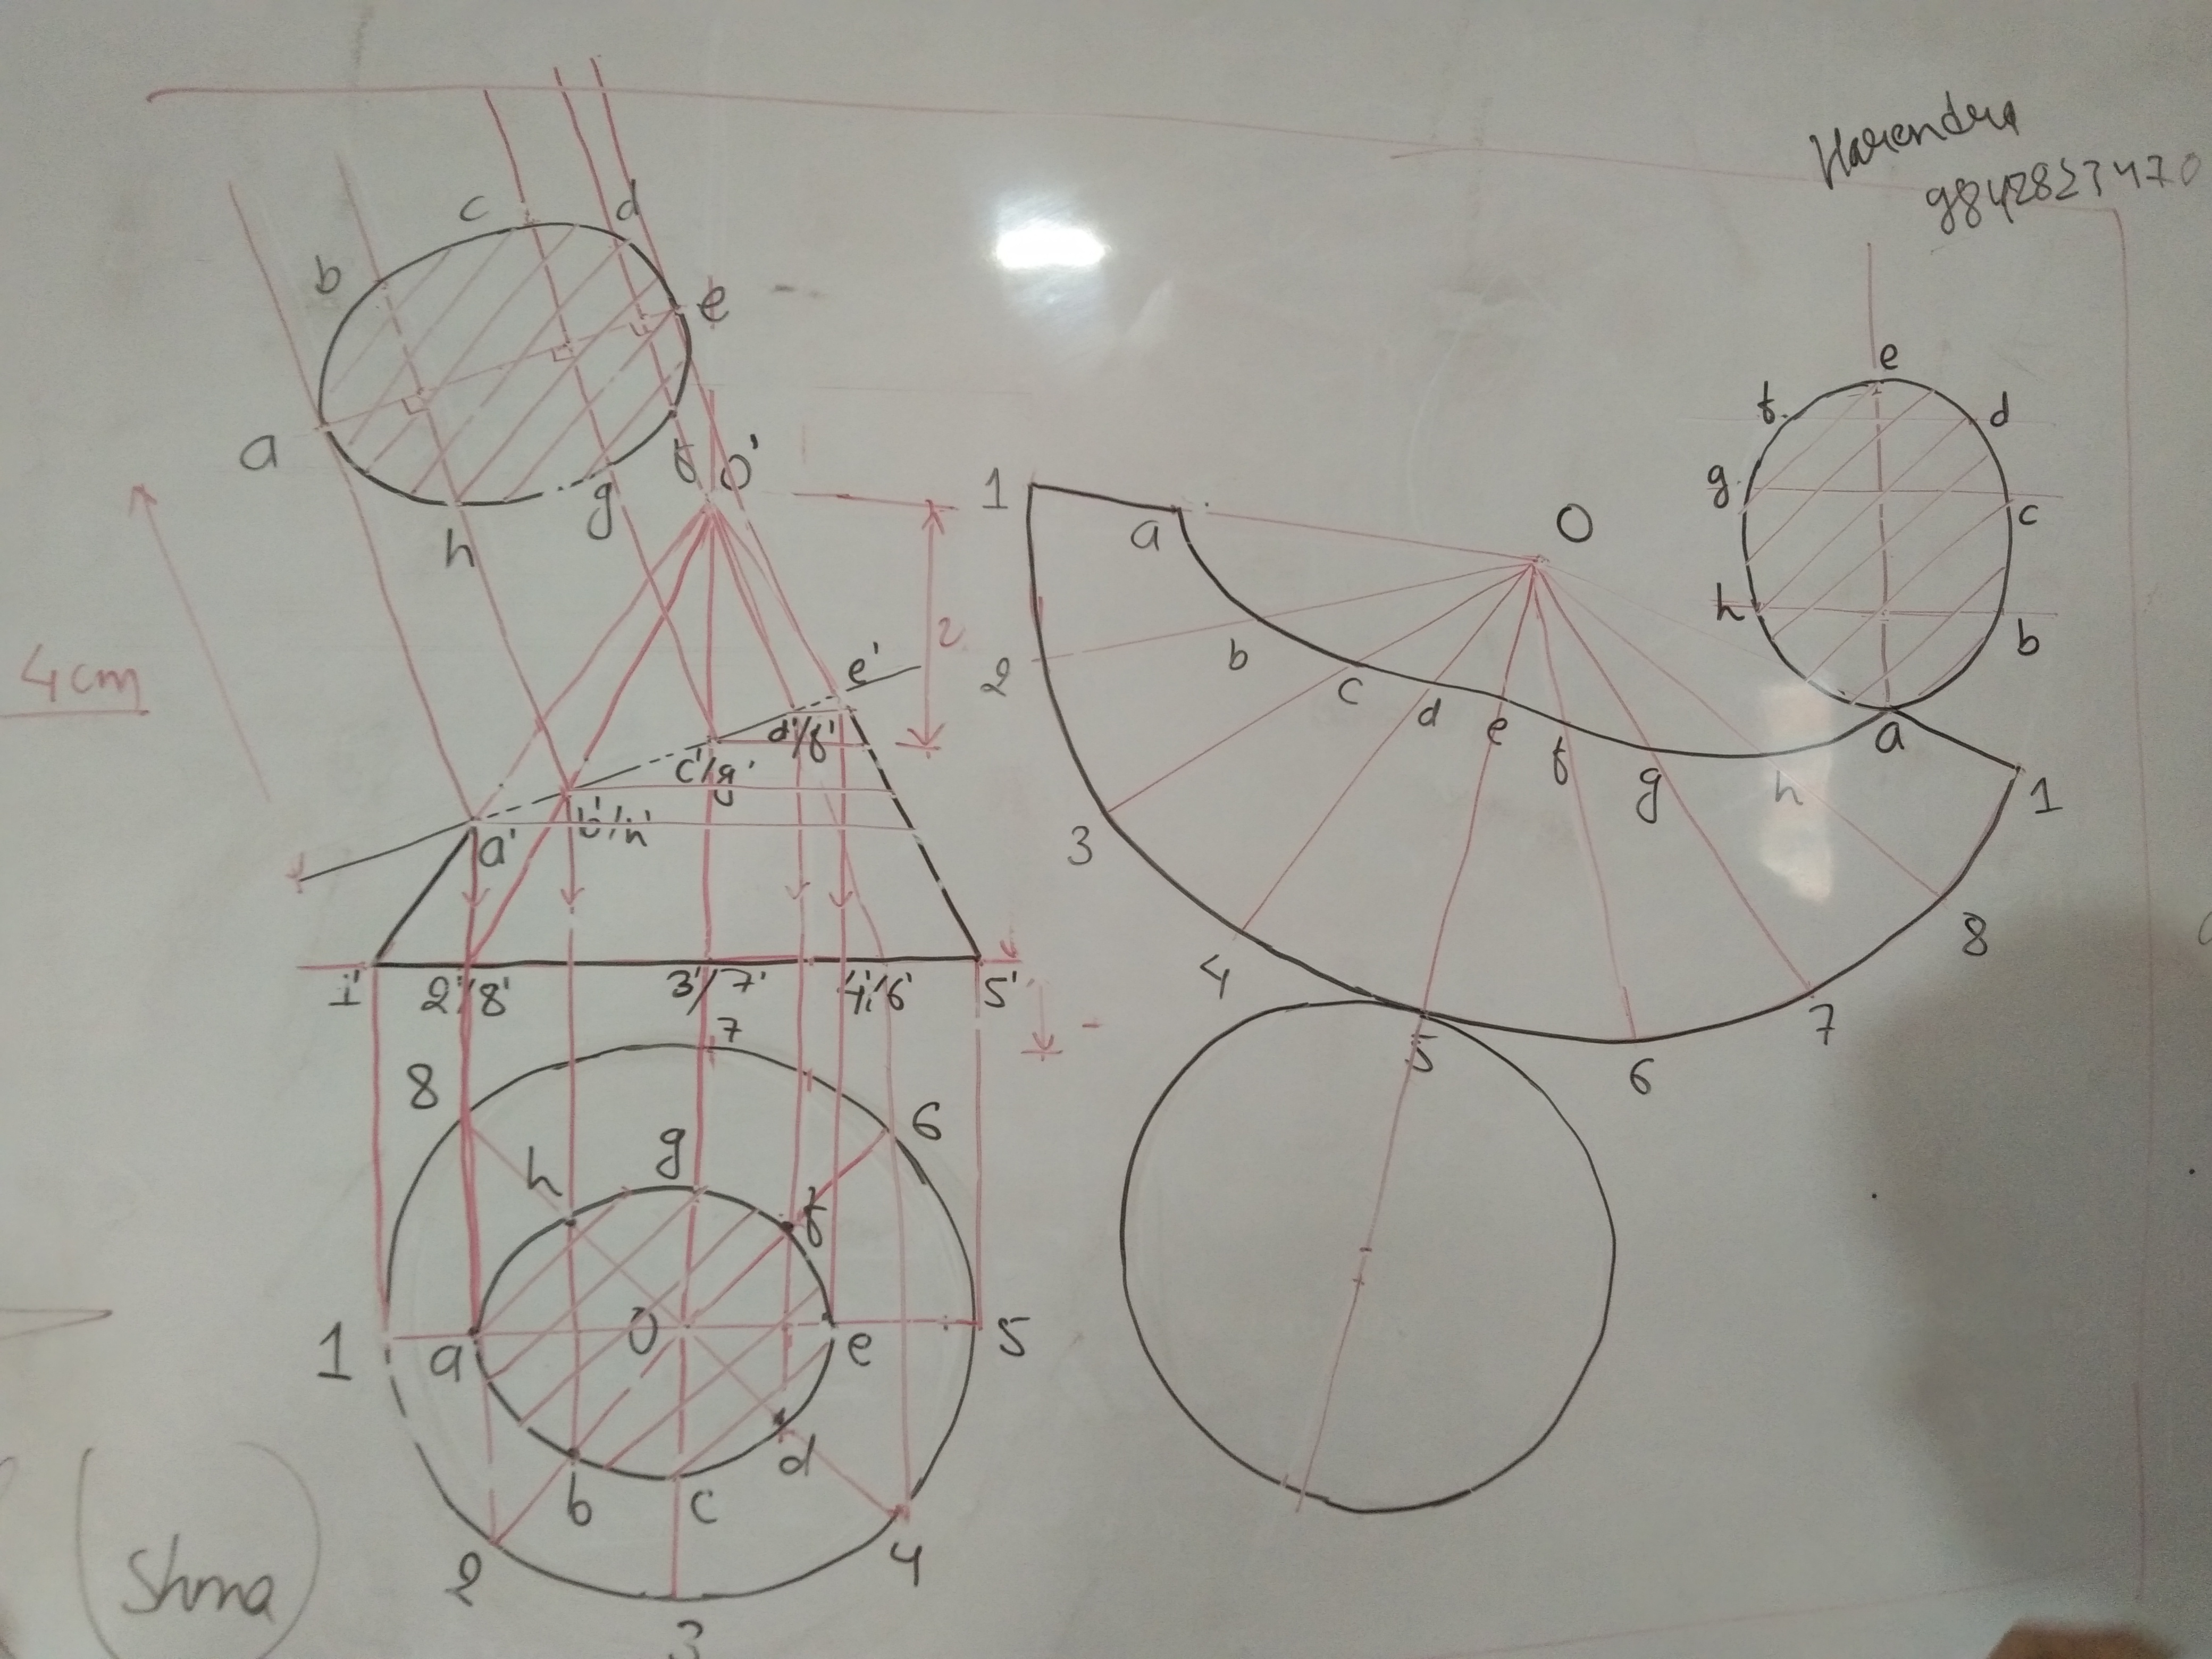 Harendra
9842823470
c
d
b
e
a
f
O'
h
g
4cm
2
e'
d'/f'
c'/g'
b'/h'
a'
1'
2'/8'
3'/7'
4'/6'
5'
7
8
6
g
h
f
1
a
O
e
5
d
b
c
2
4
3
Shma
1
a
O
2
b
c
d
e
f
g
h
a
1
3
4
5
6
7
8
e
f
d
g
c
h
b